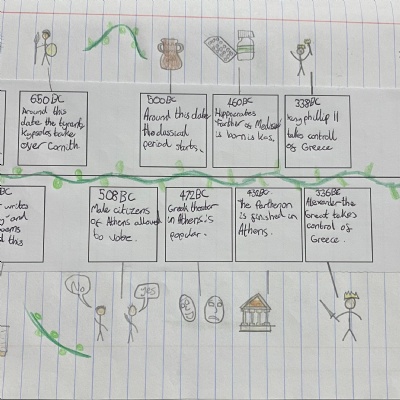 650BC
Around this
date the tyrants
Kypselos taker
over Corinth.
500BC
Around this date
the classical
period starts.
460BC
Hippocrates
Farther of Medicine
is born is Kos.
338BC
King phillip II
takes controll
of Greece
BC
writes
and
this
508BC
Male citizens
of Athens allowed
to vote.
472BC
Greek theater
in Athens is
popular.
432BC
The Parthenon
is finished in
Athens.
336BC
Alexander the
Great takes
control of
Greece.
No
yes